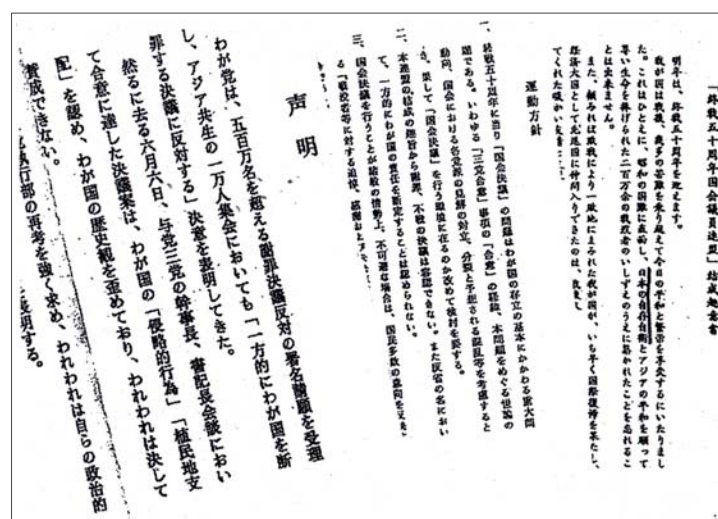 「終戦五十周年国会議員連盟」結成趣意書
明年は、終戦五十周年を迎えます。
我が国は戦後、幾多の苦難を乗り越えて今日の平和と繁栄を享受するにいたりまし
た。これはひとえに、昭和の国難に直面し、日本の自存自衛とアジアの平和を願って
尊い生命を捧げられた二百万余の戦歿者のいしずえのうえに築かれたことを忘れるこ
とは出来ません。
また、顧みれば敗戦により一敗地にまみれた我が国が、いち早く国際復帰を果たし、
経済大国として先進国に仲間入りできたのは、
てくれた暖かい
運動方針
一、終戦五十周年に当り「国会決議」の問題はわが国の存立の基本にかかわる重大問
題である。いわゆる「三党合意」事項の「合意」の経緯、本問題をめぐる世論の
動向、国会における各党派の見解の対立、分裂と予想される混乱等を考慮すると
き、果して「国会決議」を行う環境に在るのか改めて検討を要する。
二、本連盟の結成の趣旨から謝罪、不戦の決議は容認できない。また反省の名におい
て、一方的にわが国の責任を断定することは認められない。
三、国会決議を行うことが諸般の情勢上、不可避な場合は、国民多数の意向を
る「戦歿者等に対する追悼、感謝
声明
わが党は、五百万名を超える謝罪決議反対の署名請願を受理
し、アジア共生の一万人集会においても「一方的にわが国を断
罪する決議に反対する」決意を表明してきた。
然るに去る六月六日、与党三党の幹事長、書記長会談におい
て合意に達した決議案は、わが国の「侵略的行為」「植民地支
配」を認め、わが国の歴史観を歪めており、われわれは決して
賛成できない。
執行部の再考を強く求め、われわれは自らの政治的
表明する。